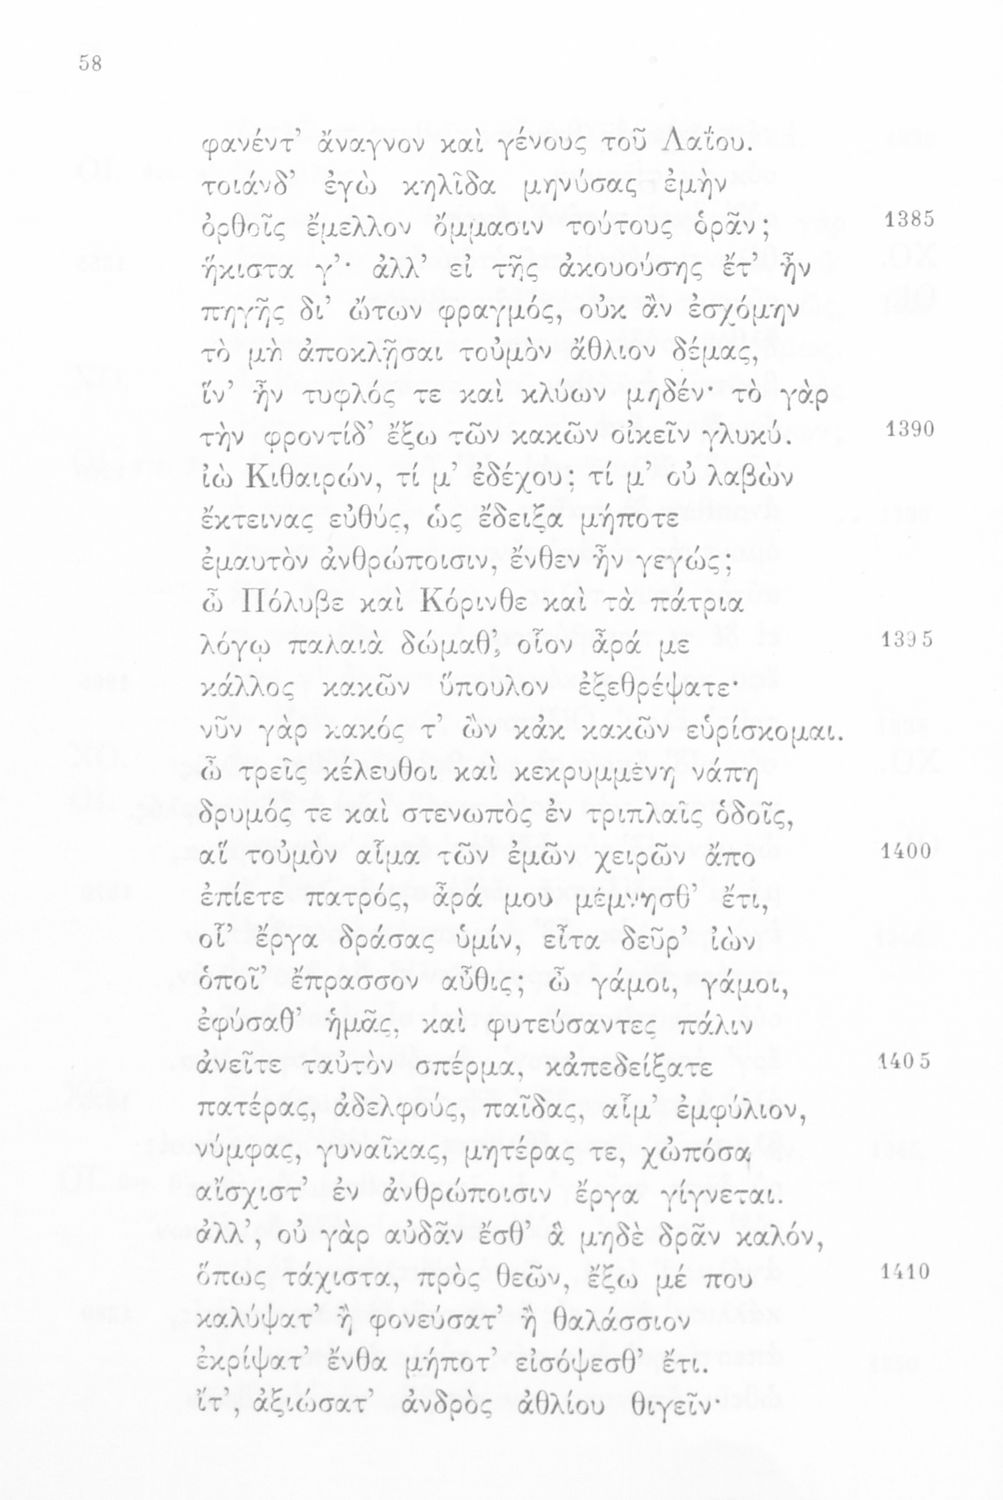 58
φανέντ’ ἄναγνον καὶ γένους τοῦ Λαΐου.
τοιάνδ’ ἐγὼ κηλῖδα μηνύσας ἐμὴν
ὀρθοῖς ἔμελλον ὄμμασιν τούτους ὁρᾶν; 1385
ἥκιστα γ’· ἀλλ’ εἰ τῆς ἀκουούσης ἔτ’ ἦν
πηγῆς δι’ ὤτων φραγμός, οὐκ ἂν ἐσχόμην
τὸ μὴ ἀποκλῇσαι τοὐμὸν ἄθλιον δέμας,
ἵν’ ἦν τυφλός τε καὶ κλύων μηδέν· τὸ γὰρ
τὴν φροντίδ’ ἔξω τῶν κακῶν οἰκεῖν γλυκύ. 1390
ἰὼ Κιθαιρών, τί μ’ ἐδέχου; τί μ’ οὐ λαβὼν
ἔκτεινας εὐθύς, ὡς ἔδειξα μήποτε
ἐμαυτὸν ἀνθρώποισιν, ἔνθεν ἦν γεγώς;
ὦ Πόλυβε καὶ Κόρινθε καὶ τὰ πάτρια
λόγῳ παλαιὰ δώμαθ’, οἷον ἆρά με 1395
κάλλος κακῶν ὕπουλον ἐξεθρέψατε·
νῦν γὰρ κακός τ’ ὢν κἀκ κακῶν εὑρίσκομαι.
ὦ τρεῖς κέλευθοι καὶ κεκρυμμένη νάπη
δρυμός τε καὶ στενωπὸς ἐν τριπλαῖς ὁδοῖς,
αἳ τοὐμὸν αἷμα τῶν ἐμῶν χειρῶν ἄπο 1400
ἐπίετε πατρός, ἆρά μου μέμνησθ’ ἔτι,
οἷ’ ἔργα δράσας ὑμίν, εἶτα δεῦρ’ ἰὼν
ὁποῖ’ ἔπρασσον αὖθις; ὦ γάμοι, γάμοι,
ἐφύσαθ’ ἡμᾶς, καὶ φυτεύσαντες πάλιν
ἀνεῖτε ταὐτὸν σπέρμα, κἀπεδείξατε 1405
πατέρας, ἀδελφούς, παῖδας, αἷμ’ ἐμφύλιον,
νύμφας, γυναῖκας, μητέρας τε, χὠπόσα
αἴσχιστ’ ἐν ἀνθρώποισιν ἔργα γίγνεται.
ἀλλ’, οὐ γὰρ αὐδᾶν ἔσθ’ ἃ μηδὲ δρᾶν καλόν,
ὅπως τάχιστα, πρὸς θεῶν, ἔξω μέ που 1410
καλύψατ’ ἢ φονεύσατ’ ἢ θαλάσσιον
ἐκρίψατ’ ἔνθα μήποτ’ εἰσόψεσθ’ ἔτι.
ἴτ’, ἀξιώσατ’ ἀνδρὸς ἀθλίου θιγεῖν·